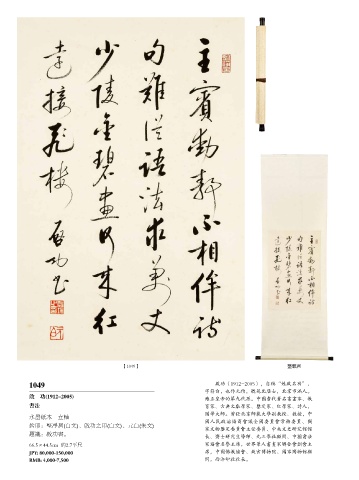 主賓動靜不相侔詩
句難從語法求萬丈
少陵金碧畫何來紅
遠接飛樓 啓功書
【1049】
1049
啟 功(1912-2005)
書法
水墨紙本 立軸
66.5×44.5cm 約2.7平尺
JPY: 80,000-150,000
RMB: 4,000-7,500
啟功(1912-2005),自稱“姓啟名功”,
字元白,也作元伯,號苑北居士,北京市滿人。
雍正皇帝的第九代孫。中國當代著名書畫家、教
育家、古典文獻學家、鑒定家、紅學家、詩人、
國學大師。曾任北京師範大學副教授、教授,中
國人民政治協商會議全國委員會常務委員、國
家文物鑒定委員會主任委員、中央文史研究館館
長、博士研究生導師、九三學社顧問、中國書法
家協會名譽主席,世界華人書畫家聯合會創會主
席、中國佛教協會、故宮博物院、國家博物館顧
問,西泠印社社長。